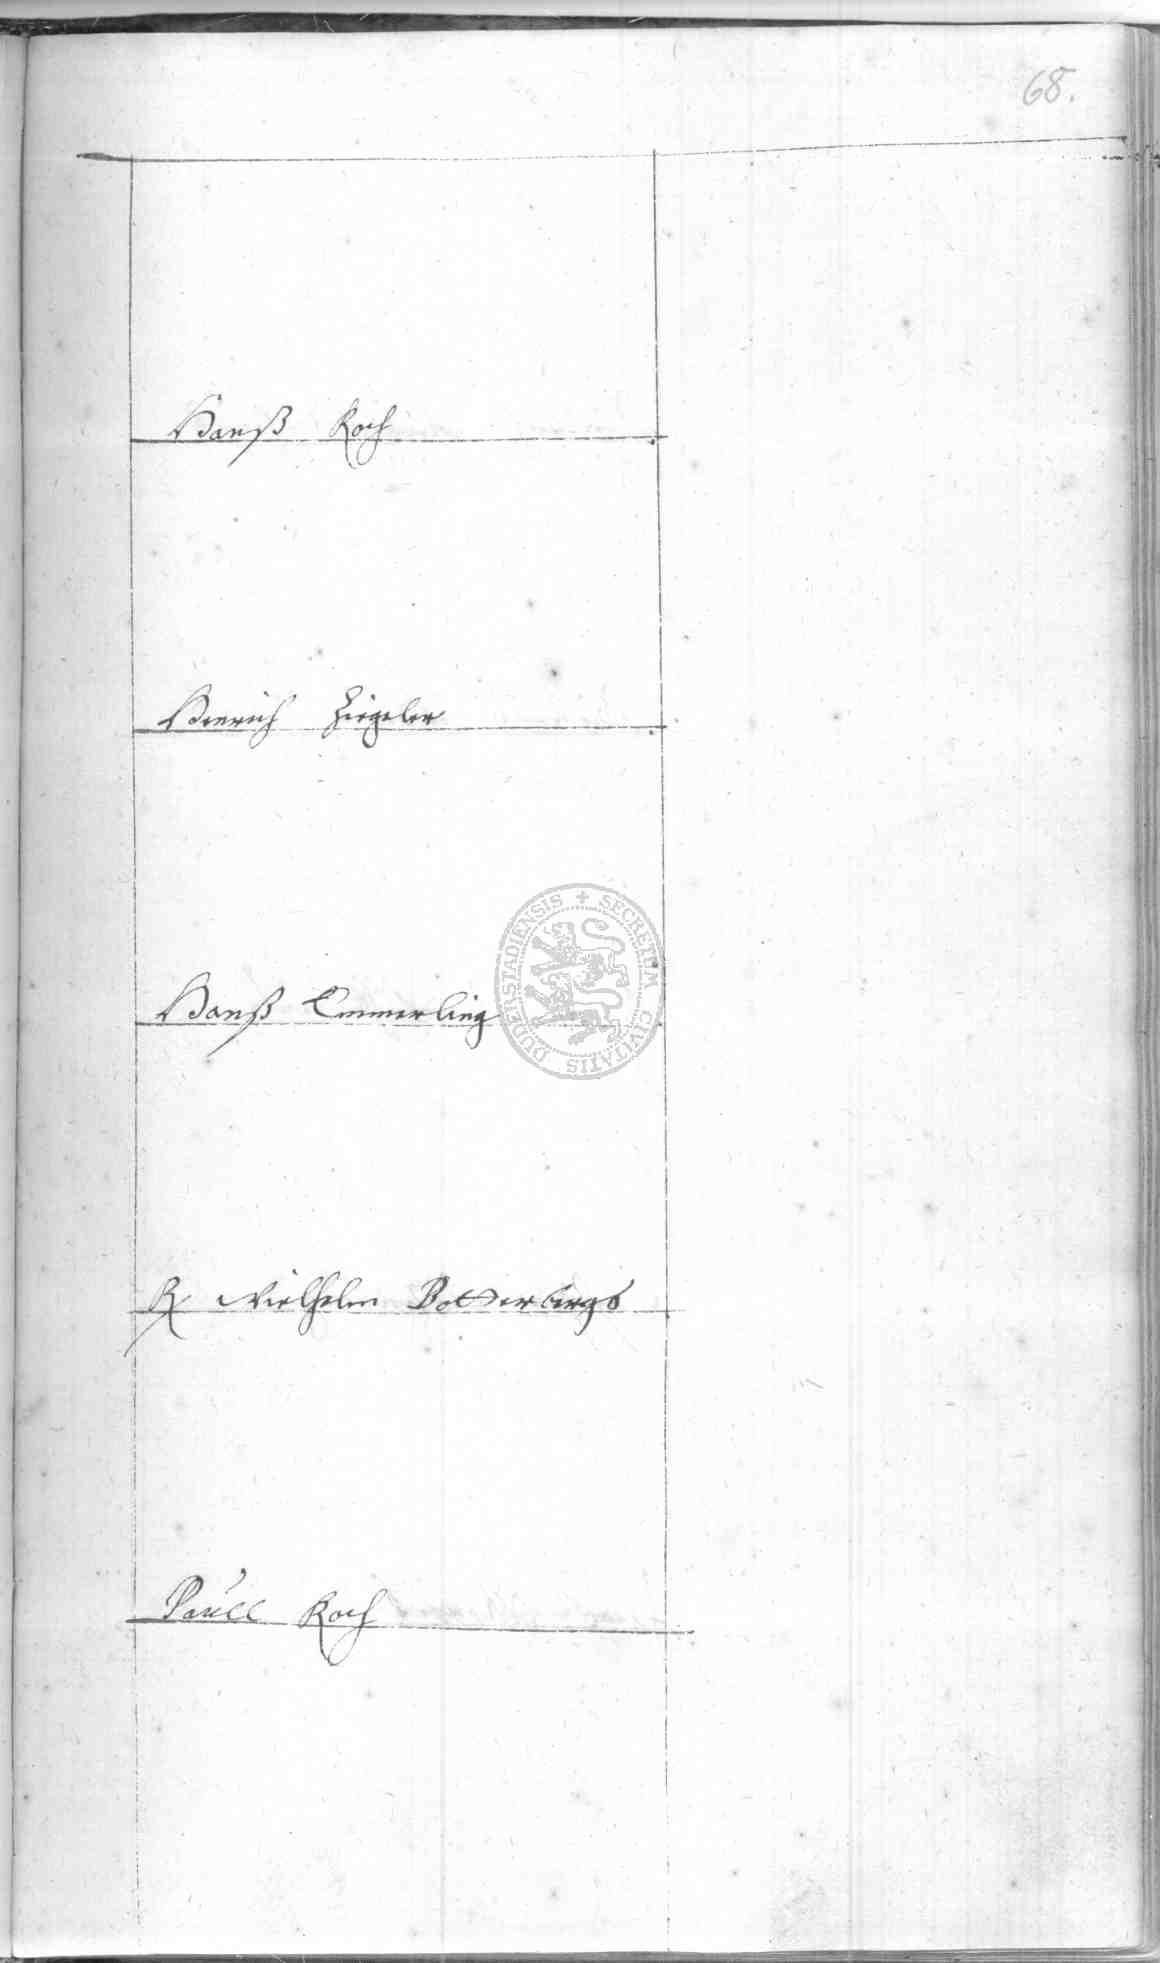 68.
Hanß Koch
Henrich Ziegeler
Hanß Emmerling
R Wielhelm Botterbergs
Paull Koch
SECRETUM CIVITATIS DUDERSTADIENSIS